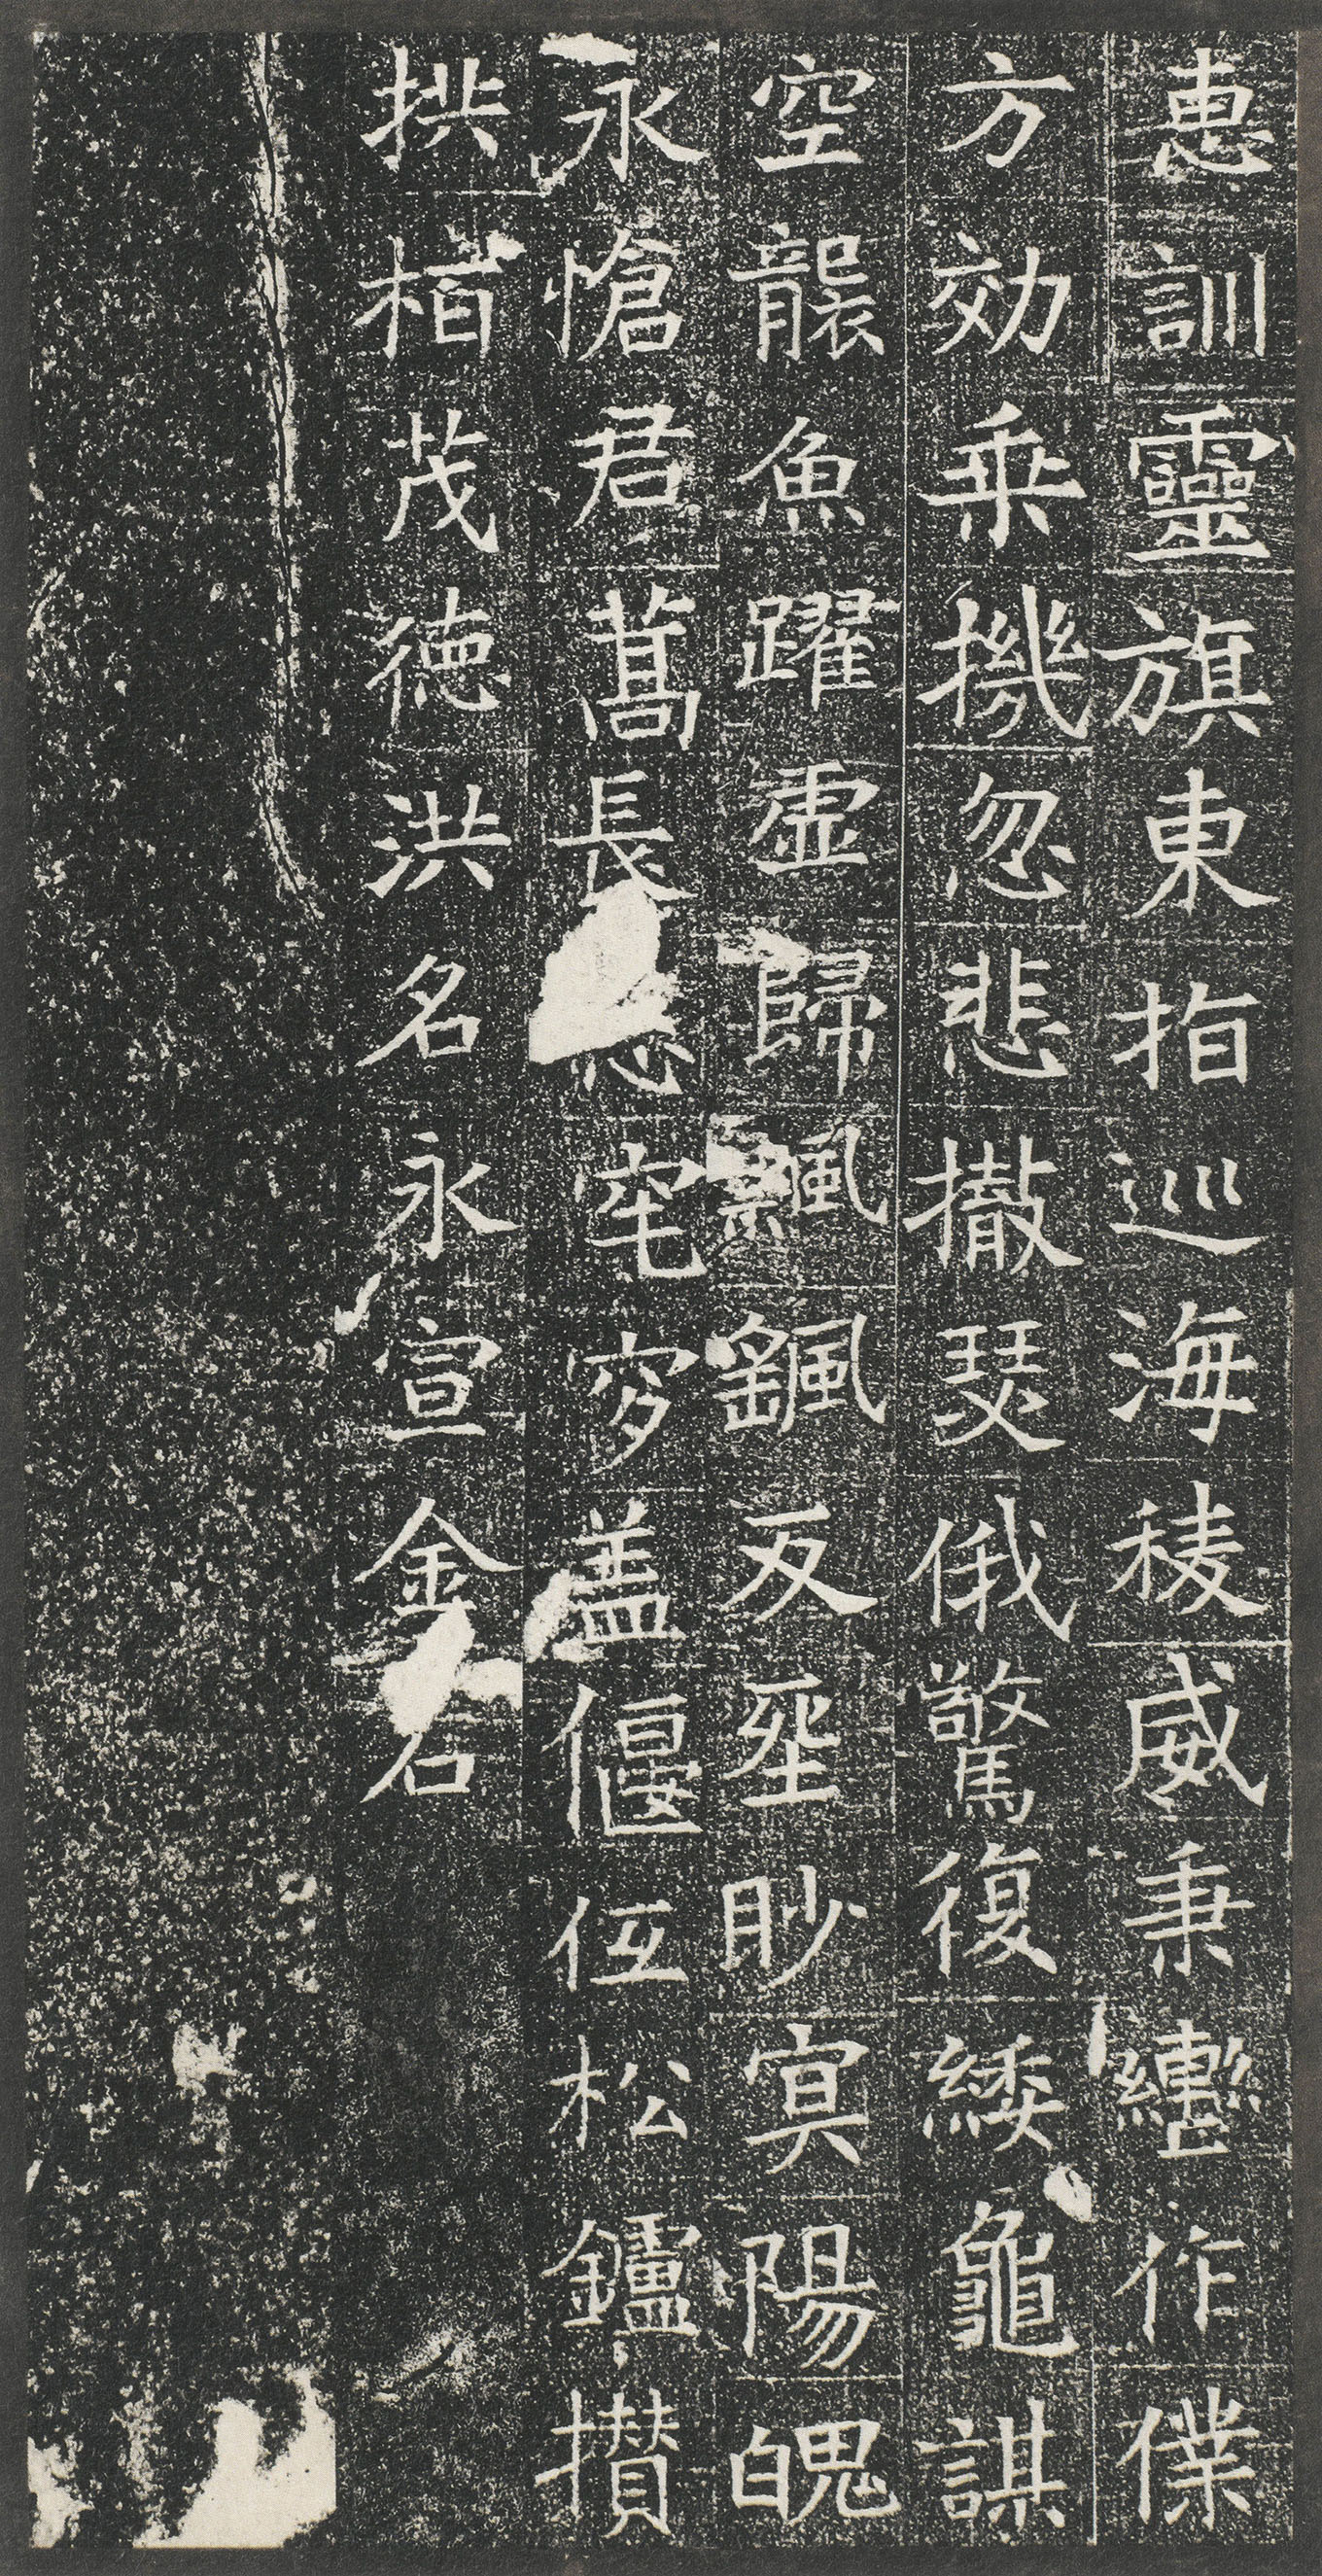 惠訓靈旗東指巡海稜威秉轡作僕
方効乗機忽悲撒瑟俄驚復綏龜謀
空襲魚躍虛歸飄颻反葬眇冥陽魄
永愴君蒿長窀穸盖偃伍松鑪攢
拱栢茂德洪名永宣金石